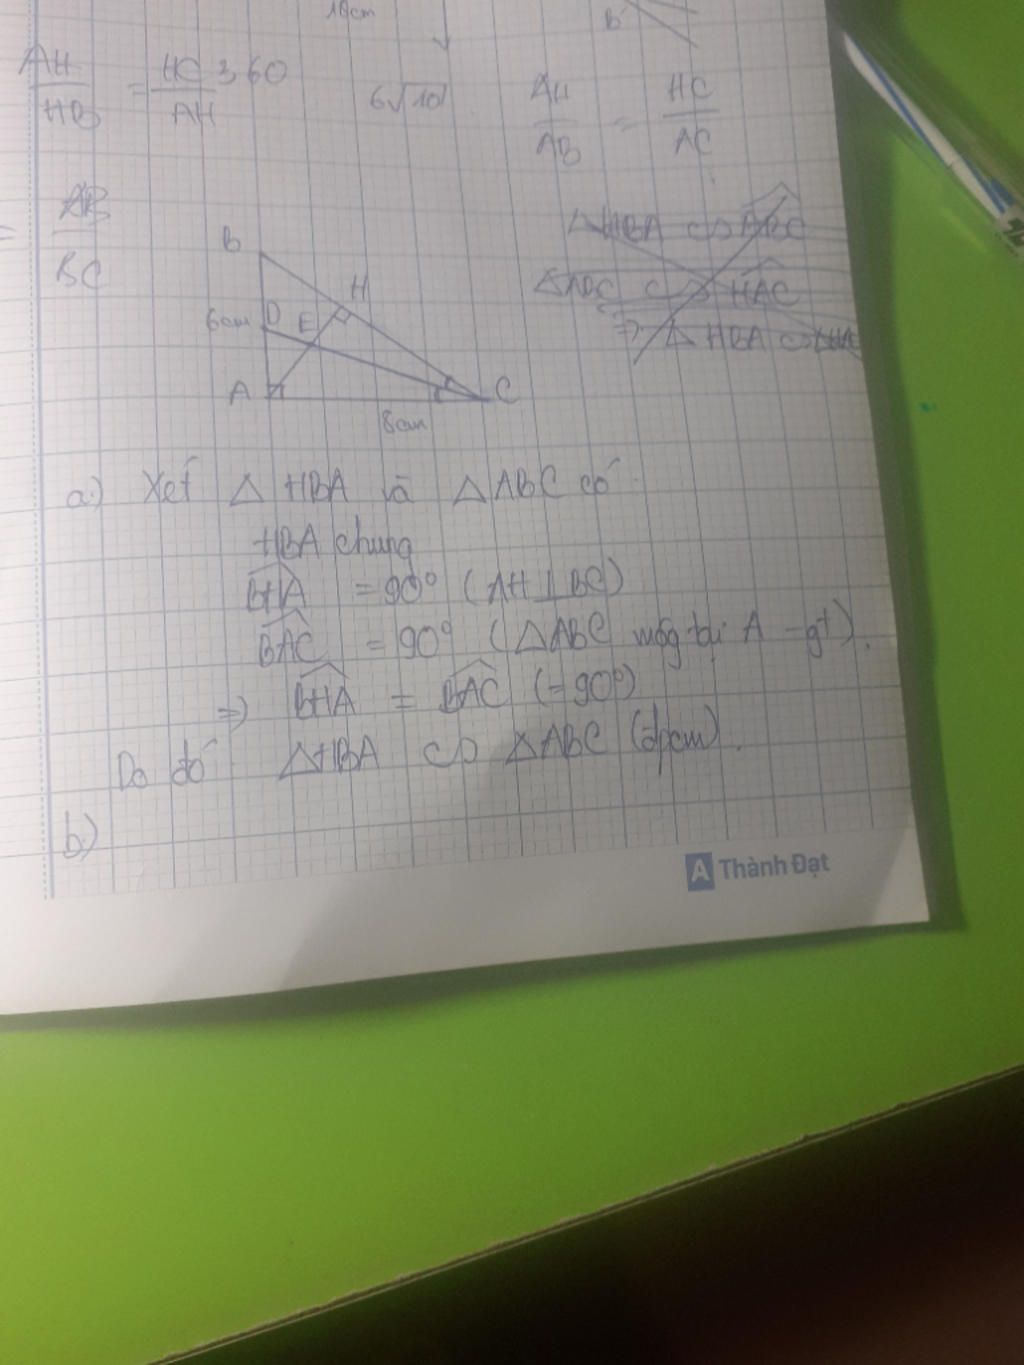 18cm
B'
AH/HB = HC/AH
360
6√10
AH/AB = HC/AC
= AB/BC
△HBA ∽ ABC
HAC
⇒ △HBA ∽
B
H
6cm D E
A C
8cm
a.) Xét △HBA và △ABC có
HBA chung
BHA = 90° (AH ⊥ BC)
BAC = 90° (△ABC tại A - gt).
⇒ BHA = BAC (=90°)
Do đó △HBA ∽ △ABC (đpcm).
b.)
A Thành Đạt